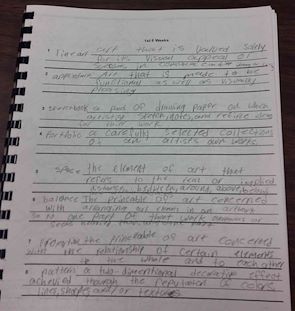 1st 6 Weeks
• fine art art that is valued solely
for its visual appeal or
success in
• applied art Art that is made to be
functional as well as visually
pleasing
• sketchbook a pad of drawing paper on which
artists sketch, notes, and refine ideas
for their work
• Portfolio a carefully selected collections
of an artists own works.
• space the element of art that
refers to the real or implied
distance, between, around, above, below
• balance The principle of art concerned
with arranging
So no one part of that work
seems heavier
the principle of art concerned
with the relationship of certain elements
to the whole and to each other
• pattern a two-dimentional decorative effect
achieved through the reputation of colors,
lines, shapes and/or textures